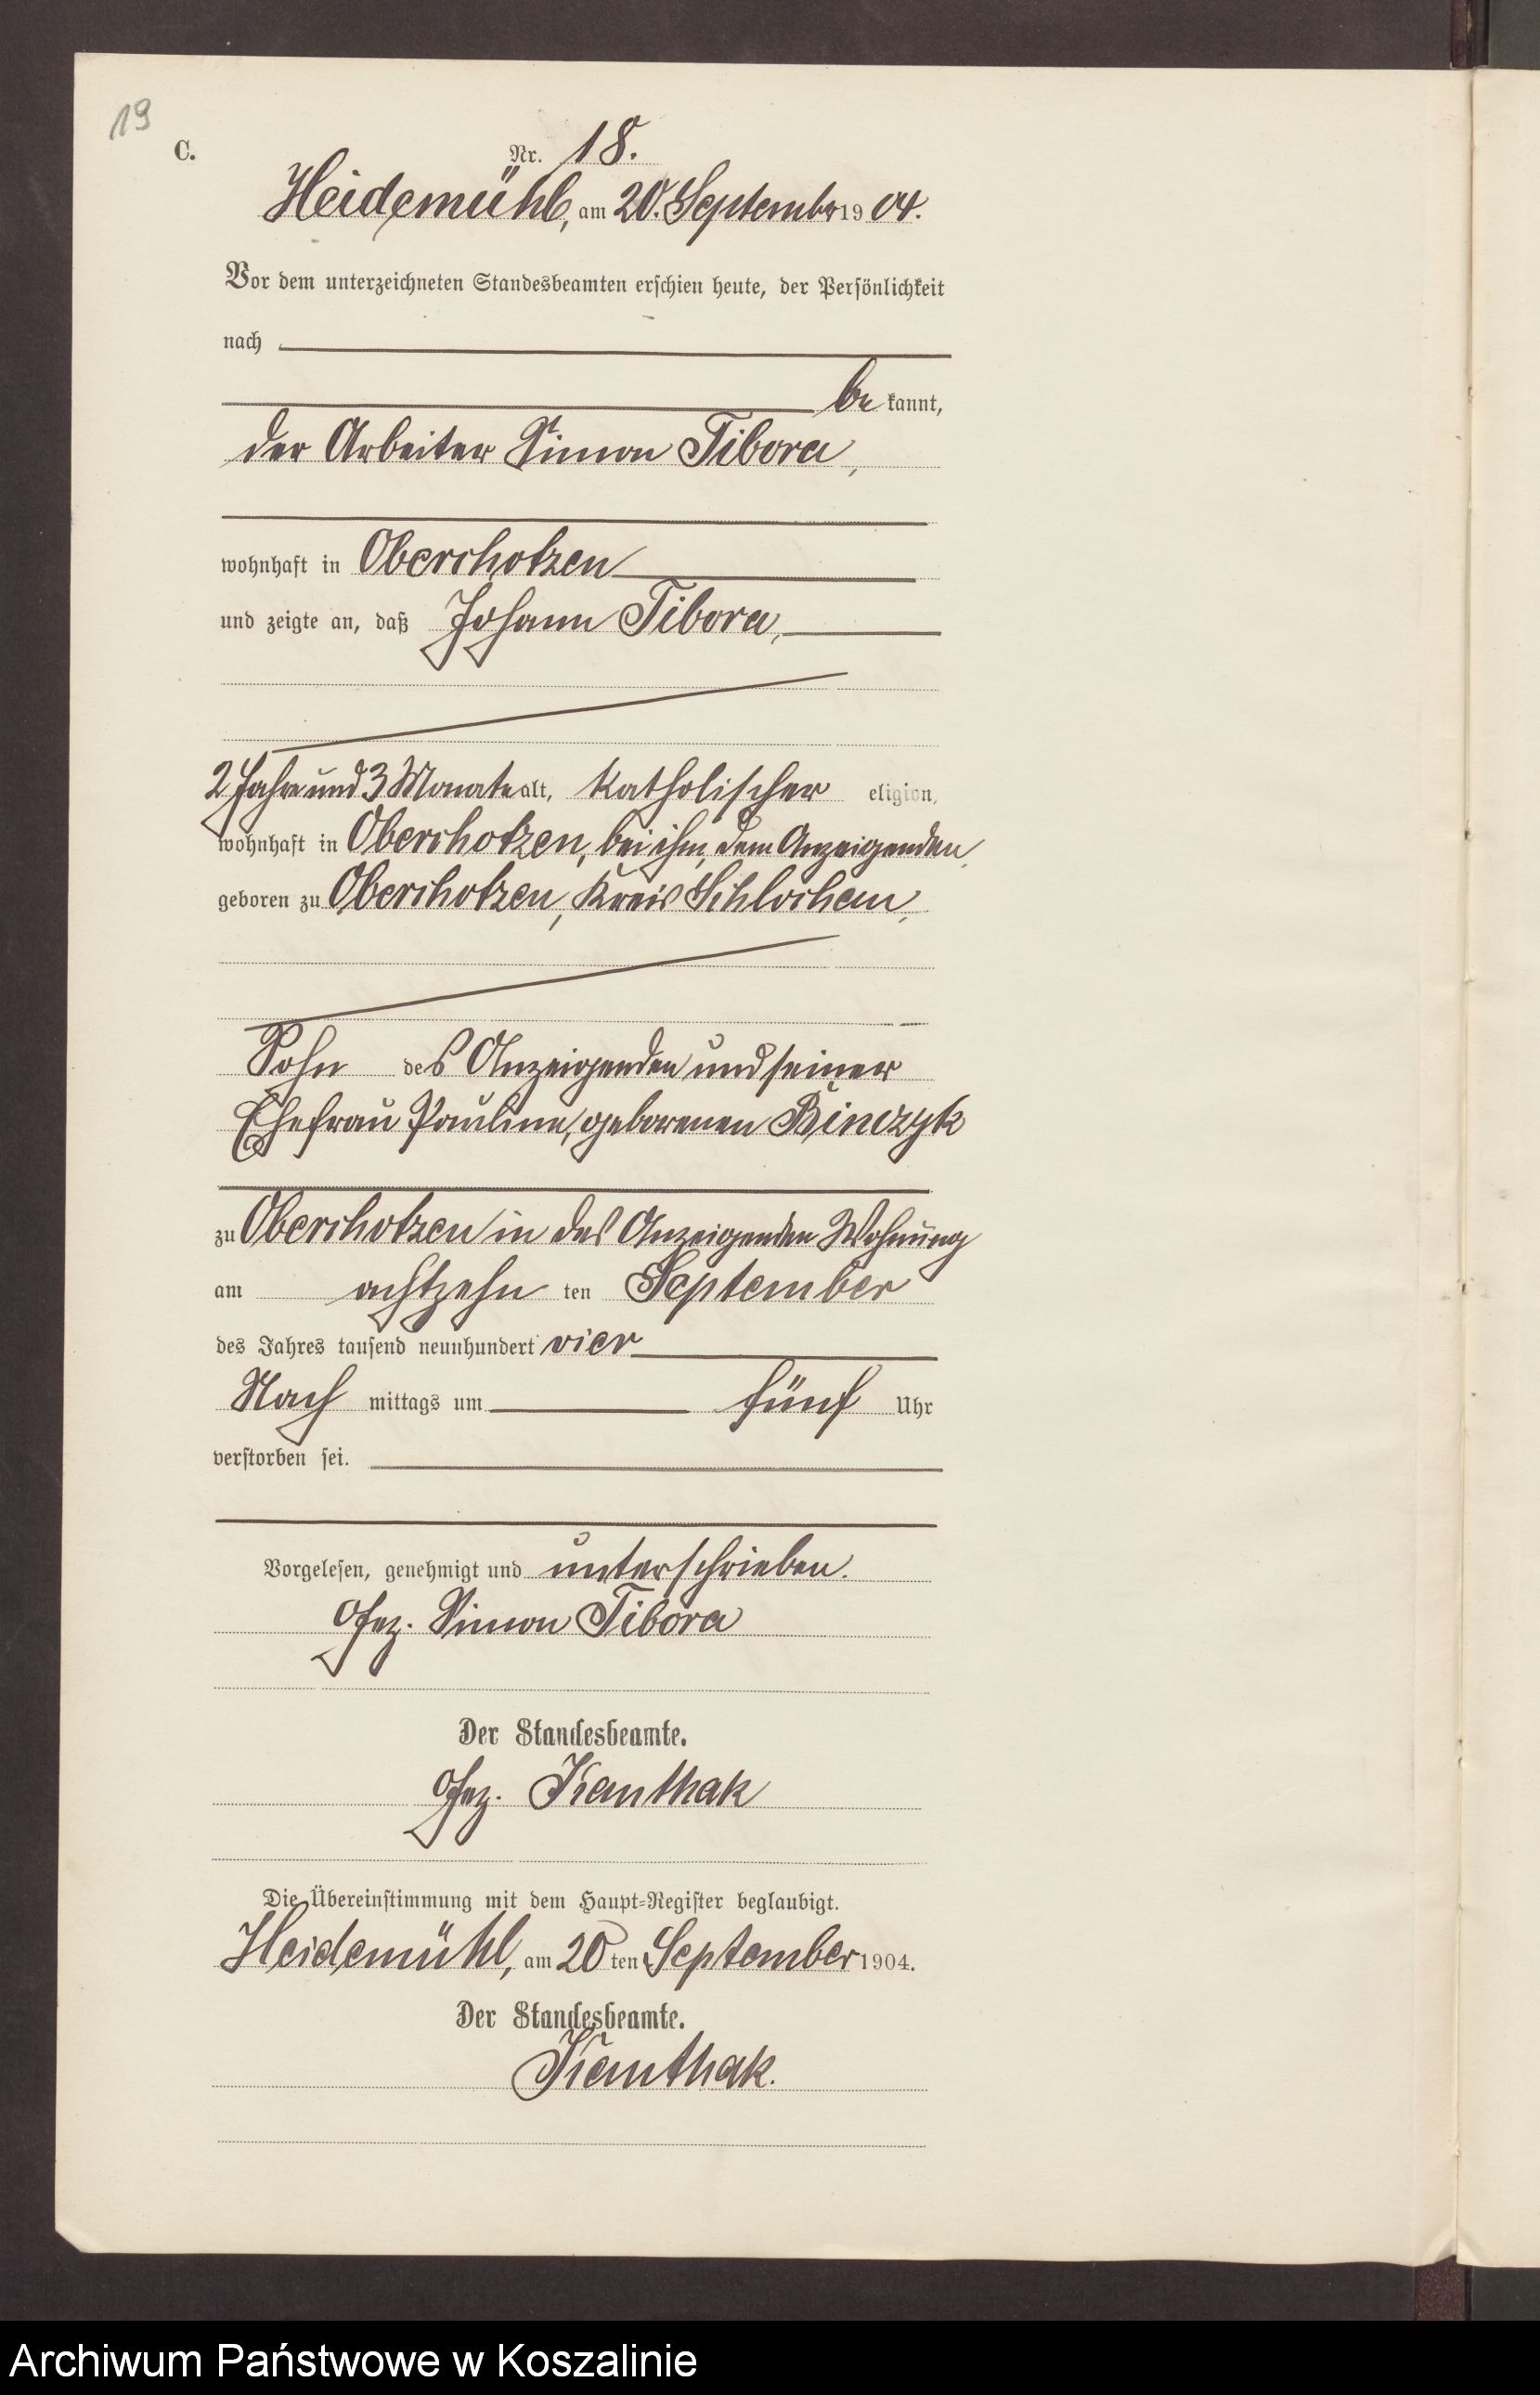 19
C.
Nr. 18.
Heidemühl, am 20. September 1904.
Vor dem unterzeichneten Standesbeamten erschien heute, der Persönlichkeit
nach
be kannt,
der Arbeiter Simon Tibora,
wohnhaft in Oberchotzen
und zeigte an, daß Johann Tibora,
2 Jahre und 3 Monate alt, katholischer eligion,
wohnhaft in Oberchotzen, bei ihm, dem Anzeigenden,
geboren zu Oberchotzen, Kreis Schlochau,
Sohn des Anzeigenden und seiner
Ehefrau Pauline, geborenen Binczyk
zu Oberchotzen in des Anzeigenden Wohnung
am achtzehn ten September
des Jahres tausend neunhundert vier
Nach mittags um fünf Uhr
verstorben sei.
Vorgelesen, genehmigt und unterschrieben.
Gez. Simon Tibora
Der Standesbeamte.
Gez. Kanthak
Die Übereinstimmung mit dem Haupt-Register beglaubigt.
Heidemühl, am 20 ten September 1904.
Der Standesbeamte.
Kanthak.
Archiwum Państwowe w Koszalinie